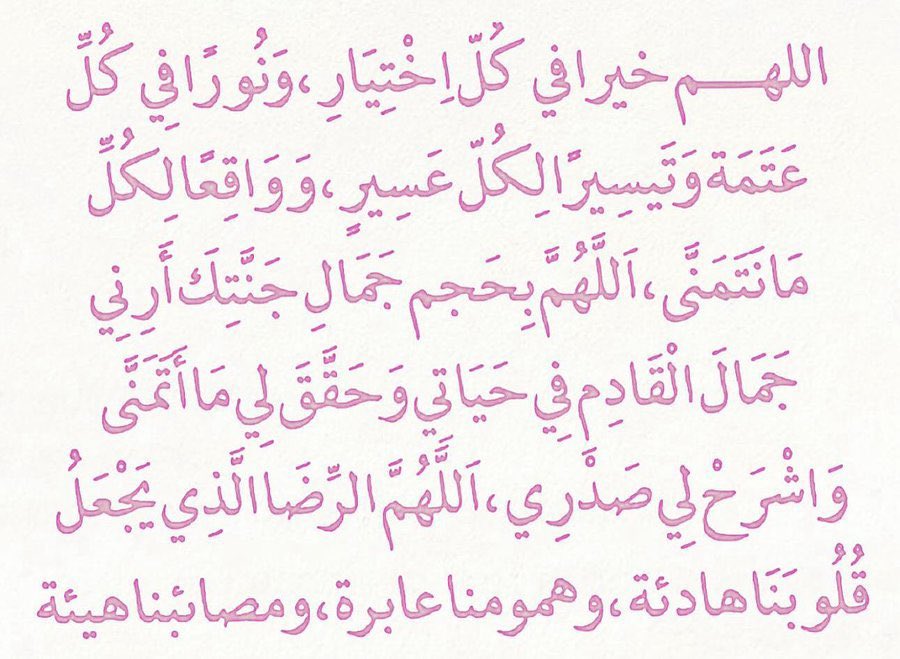 اللهـــم خيرا في كُلّ اِخْتِيَارِ ، وَنُورًا فِي كُلَّ
عَتَمَة وَتَيسِيرًا لِكُلّ عَسِيرٍ ، وَوَاقِعًا لِكُلَّ
مَا نَتَمَنَّى ، اَللَّهُمَّ بِحَجم جَمَالِ جَنَّتِكَ أَرِنِي
جَمَالَ الْقَادِم فِي حَيَاتي وَحَقَّقَ لِي مَا أَتَمَنَّى
وَاشْرَحْ لِي صَدْرِي ، اَللَّهُمَّ الرِّضَا الَّذِي يَجْعَلُ
قُلُوبَنَا هادئة ، وهمومنا عابرة ، ومصائبنا هيئة